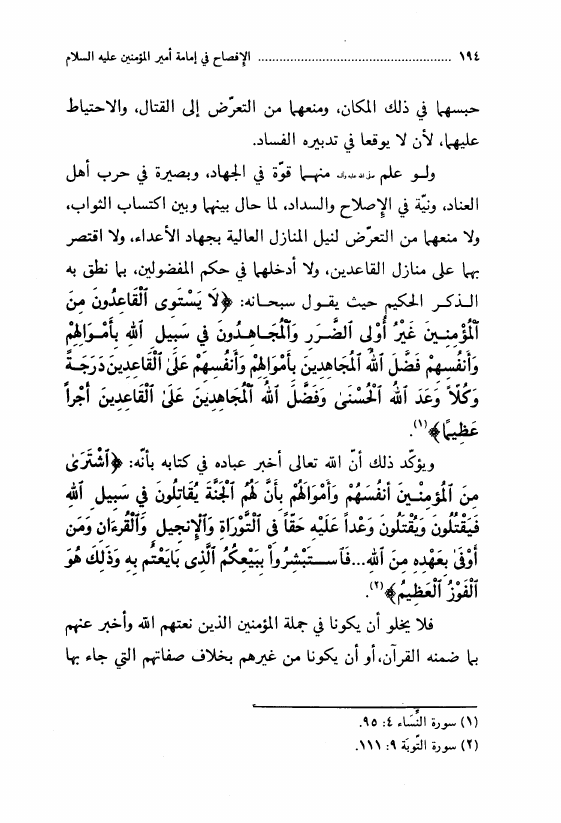 ١٩٤ ........................................................ الإفصاح في إمامة أمير المؤمنين عليه السلام
حبسهما في ذلك المكان، ومنعهما من التعرّض إلى القتال، والاحتياط
عليهما، لأن لا يوقعا في تدبيره الفساد.
ولـو علم صلى الله عليه وآله منهـما قوّة في الجهاد، وبصيرة في حرب أهل
العناد، ونيّة في الإصلاح والسداد، لما حال بينهما وبين اكتساب الثواب،
ولا منعهما من التعرّض لنيل المنازل العالية بجهاد الأعداء، ولا اقتصر
بهما على منازل القاعدين، ولا أدخلهما في حكم المفضولين، بما نطق به
الـذكـر الحكيم حيث يقـول سبحـانه: ﴿لَا يَسْتَوِى ٱلْقَاعِدُونَ مِنَ
ٱلْمُؤْمِنـينَ غَيْرُ أُوْلِى الضَّرَرِ وَٱلْمُجَـاهِـدُونَ فى سَبِيلِ ٱللهِ بِأَمْـوَالِهِمْ
وَأَنفُسِهِمْ فَضَّلَ ٱللهُ ٱلْمُجَاهِدِينَ بِأَمْوَالِهِمْ وَأَنفُسِهِمْ عَلَى ٱلْقَاعِدِينَ دَرَجَةً
وَكُلاًّ وَعَدَ ٱللهُ ٱلْحُسْنَىٰ وَفَضَّلَ ٱللهُ ٱلْمُجَاهِدِينَ عَلَى ٱلْقَاعِدِينَ أَجْراً
عَظِيمًا﴾(١).
ويؤكّد ذلك أنّ الله تعالى أخبر عباده في كتابه بأنّه: ﴿ٱشْتَرَىٰ
مِنَ ٱلْمُؤْمِنـينَ أَنفُسَهُمْ وَأَمْوَالَهُمْ بِأَنَّ لَهُمُ ٱلْجَنَّةَ يُقَاتِلُونَ فى سَبِيلِ ٱللهِ
فَيَقْتُلُونَ وَيُقْتَلُونَ وَعْداً عَلَيْهِ حَقّاً فِى ٱلتَّوْرَاةِ وَٱلْإِنجيلِ وَٱلْقُرءَانِ وَمَن
أَوْفَىٰ بِعَهْدِهِ مِنَ ٱللهِ...فَـٱسـتَبْشرُواْ بِبَيْعِكُمُ ٱلَّذِى بَايَعْتُم بِهِ وَذَلِكَ هُوَ
ٱلْفَوْزُ ٱلْعَظِيمُ﴾(٢).
فلا يخلو أن يكونا في جملة المؤمنين الذين نعتهم الله وأخبر عنهم
بما ضمنه القرآن، أو أن يكونا من غيرهم بخلاف صفاتهم التي جاء بها
(١) سورة النِّساء ٤: ٩٥.
(٢) سورة التّوبَة ٩: ١١١.